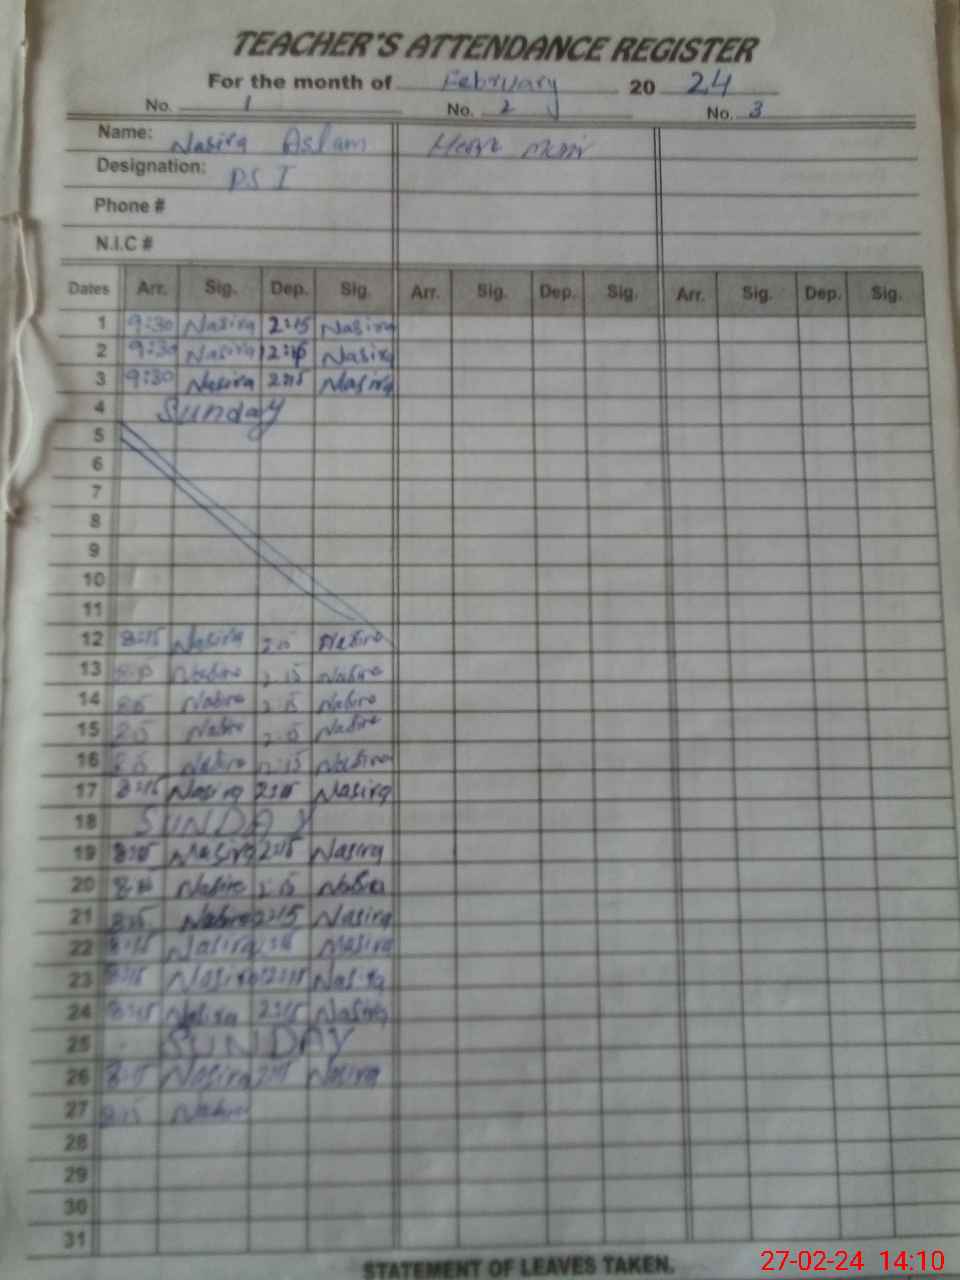 TEACHER'S ATTENDANCE REGISTER
For the month of February 20 24
No. 1 No. 2 No. 3
Name: Nasira Aslam
Designation: PST
Phone #
N.I.C #
Dates Arr. Sig. Dep. Sig. Arr. Sig. Dep. Sig. Arr. Sig. Dep. Sig.
1 9:30 Nasira 2:15 Nasira
2 9:30 Nasira 2:15 Nasira
3 9:30 Nasira 2:15 Nasira
4 Sunday
5
6
7
8
9
10
11
12 8:15 Nasira Nasira
13 Nasira 2:15 Nasira
14 Nasira 2:15 Nasira
15 Nasira Nasira
16 Nasira 2:15 Nasira
17 8:15 Nasira 2:15 Nasira
18 SUNDAY
19 8:15 Nasira 2:15 Nasira
20 8:15 Nasira 2:15 Nasira
21 8:15 Nasira 2:15 Nasira
22 8:15 Nasira Nasira
23 8:15 Nasira 2:15 Nasira
24 8:15 Nasira 2:15 Nasira
25 SUNDAY
26 8:15 Nasira 2:15 Nasira
27 8:15 Nasira
28
29
30
31
STATEMENT OF LEAVES TAKEN.
27-02-24 14:10